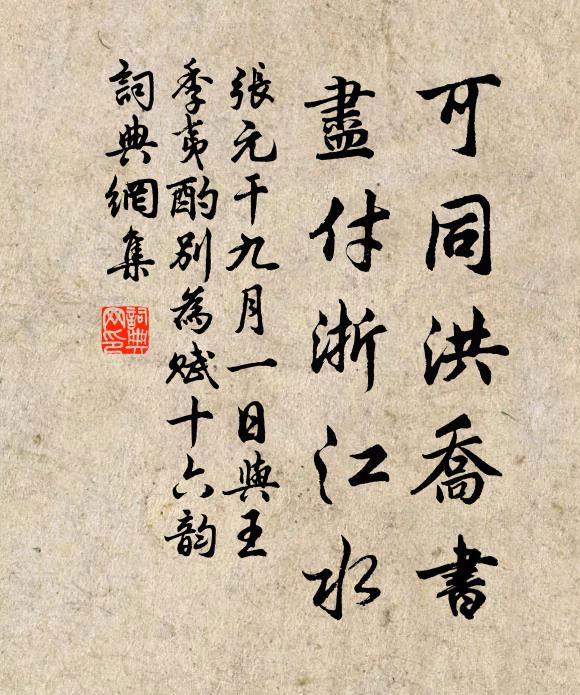 可同洪喬書
盡付浙江水
張元干九月一日與王
季夷酌別為賦十六韵
詞典網集
詞典
网印